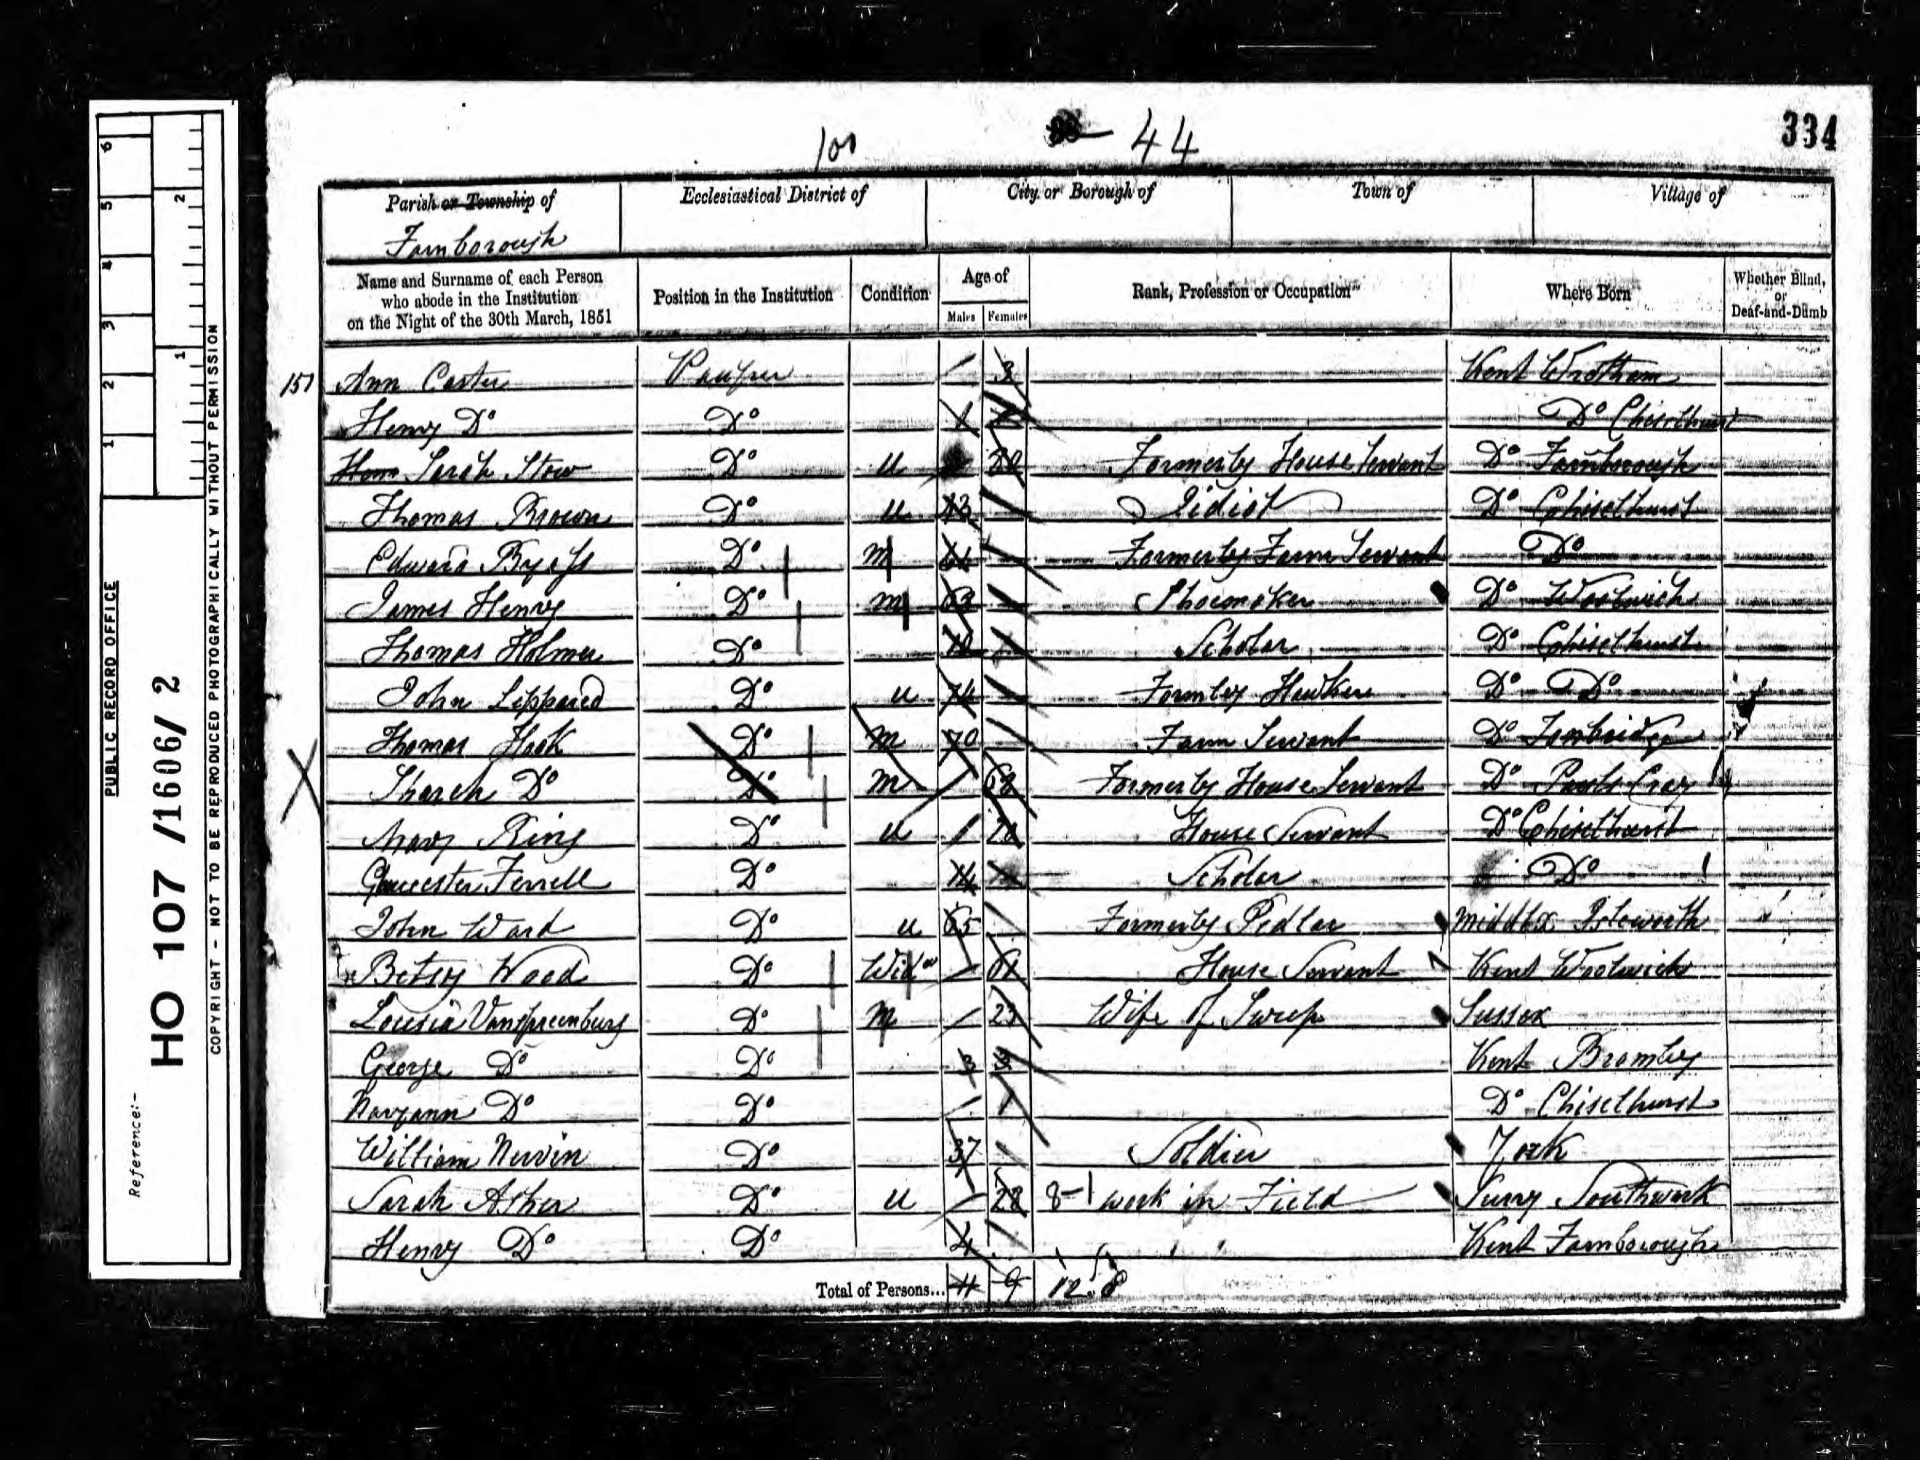 101 44 334
Parish or Township of Ecclesiastical District of City or Borough of Town of Village of
Farnborough
Name and Surname of each Person who abode in the Institution on the Night of the 30th March, 1851 Position in the Institution Condition Age of Males Females Rank, Profession or Occupation Where Born Whether Blind, or Deaf-and-Dumb
151 Ann Carter Pauper 3 Kent Wrotham
Henry Do Do Do Chiselhurst
Sarah Stow Do U Formerly House Servant Do Farnborough
Thomas Brown Do U 43 Idiot Do Chiselhurst
Edward Do M Formerly Farm Servant Do
James Henry Do M 63 Shoemaker Do Woolwich
Thomas Holmes Do Scholar Do Chiselhurst
John Do U 74 Formly Hawker Do Do
Thomas Hook Do M 70 Farm Servant Do Tonbridge
Do Do M 68 Formerly House Servant Do Pauls Cray
Mary King Do U House Servant Do Chiselhurst
Gloucester Ferrell Do 14 Scholar Do
John Ward Do U 65 Formerly Pedlar Middlx Isleworth
Betsy Wood Do Widw 61 House Servant Kent Woolwich
Louisa Do M 23 Wife of Sweep Sussex
George Do Do 3 3 Kent Bromley
Maryann Do Do 1 Do Chiselhurst
William Nervin Do 37 Soldier York
Sarah Asher Do U 28 8-1 work in Field Surry Southwark
Henry Do Do 4 Kent Farnborough
Total of Persons... 11 9 12 8
PUBLIC RECORD OFFICE
Reference:-
HO 107 /1606/ 2
COPYRIGHT - NOT TO BE REPRODUCED PHOTOGRAPHICALLY WITHOUT PERMISSION
1 2 3 4 5 6
1 2